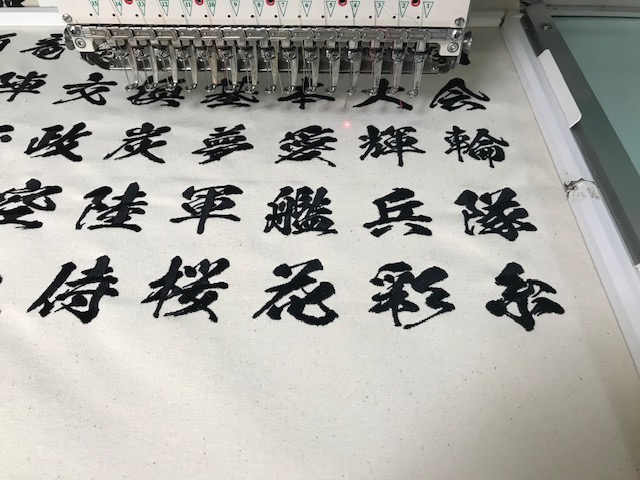 15 14 13 12 11 10 9 8 7 6 5 4 3 2 1
竜
陣 基 本 会
政 炭 夢 愛 輝 輪
空 陸 軍 艦 兵 隊
侍 桜 花 彩 糸